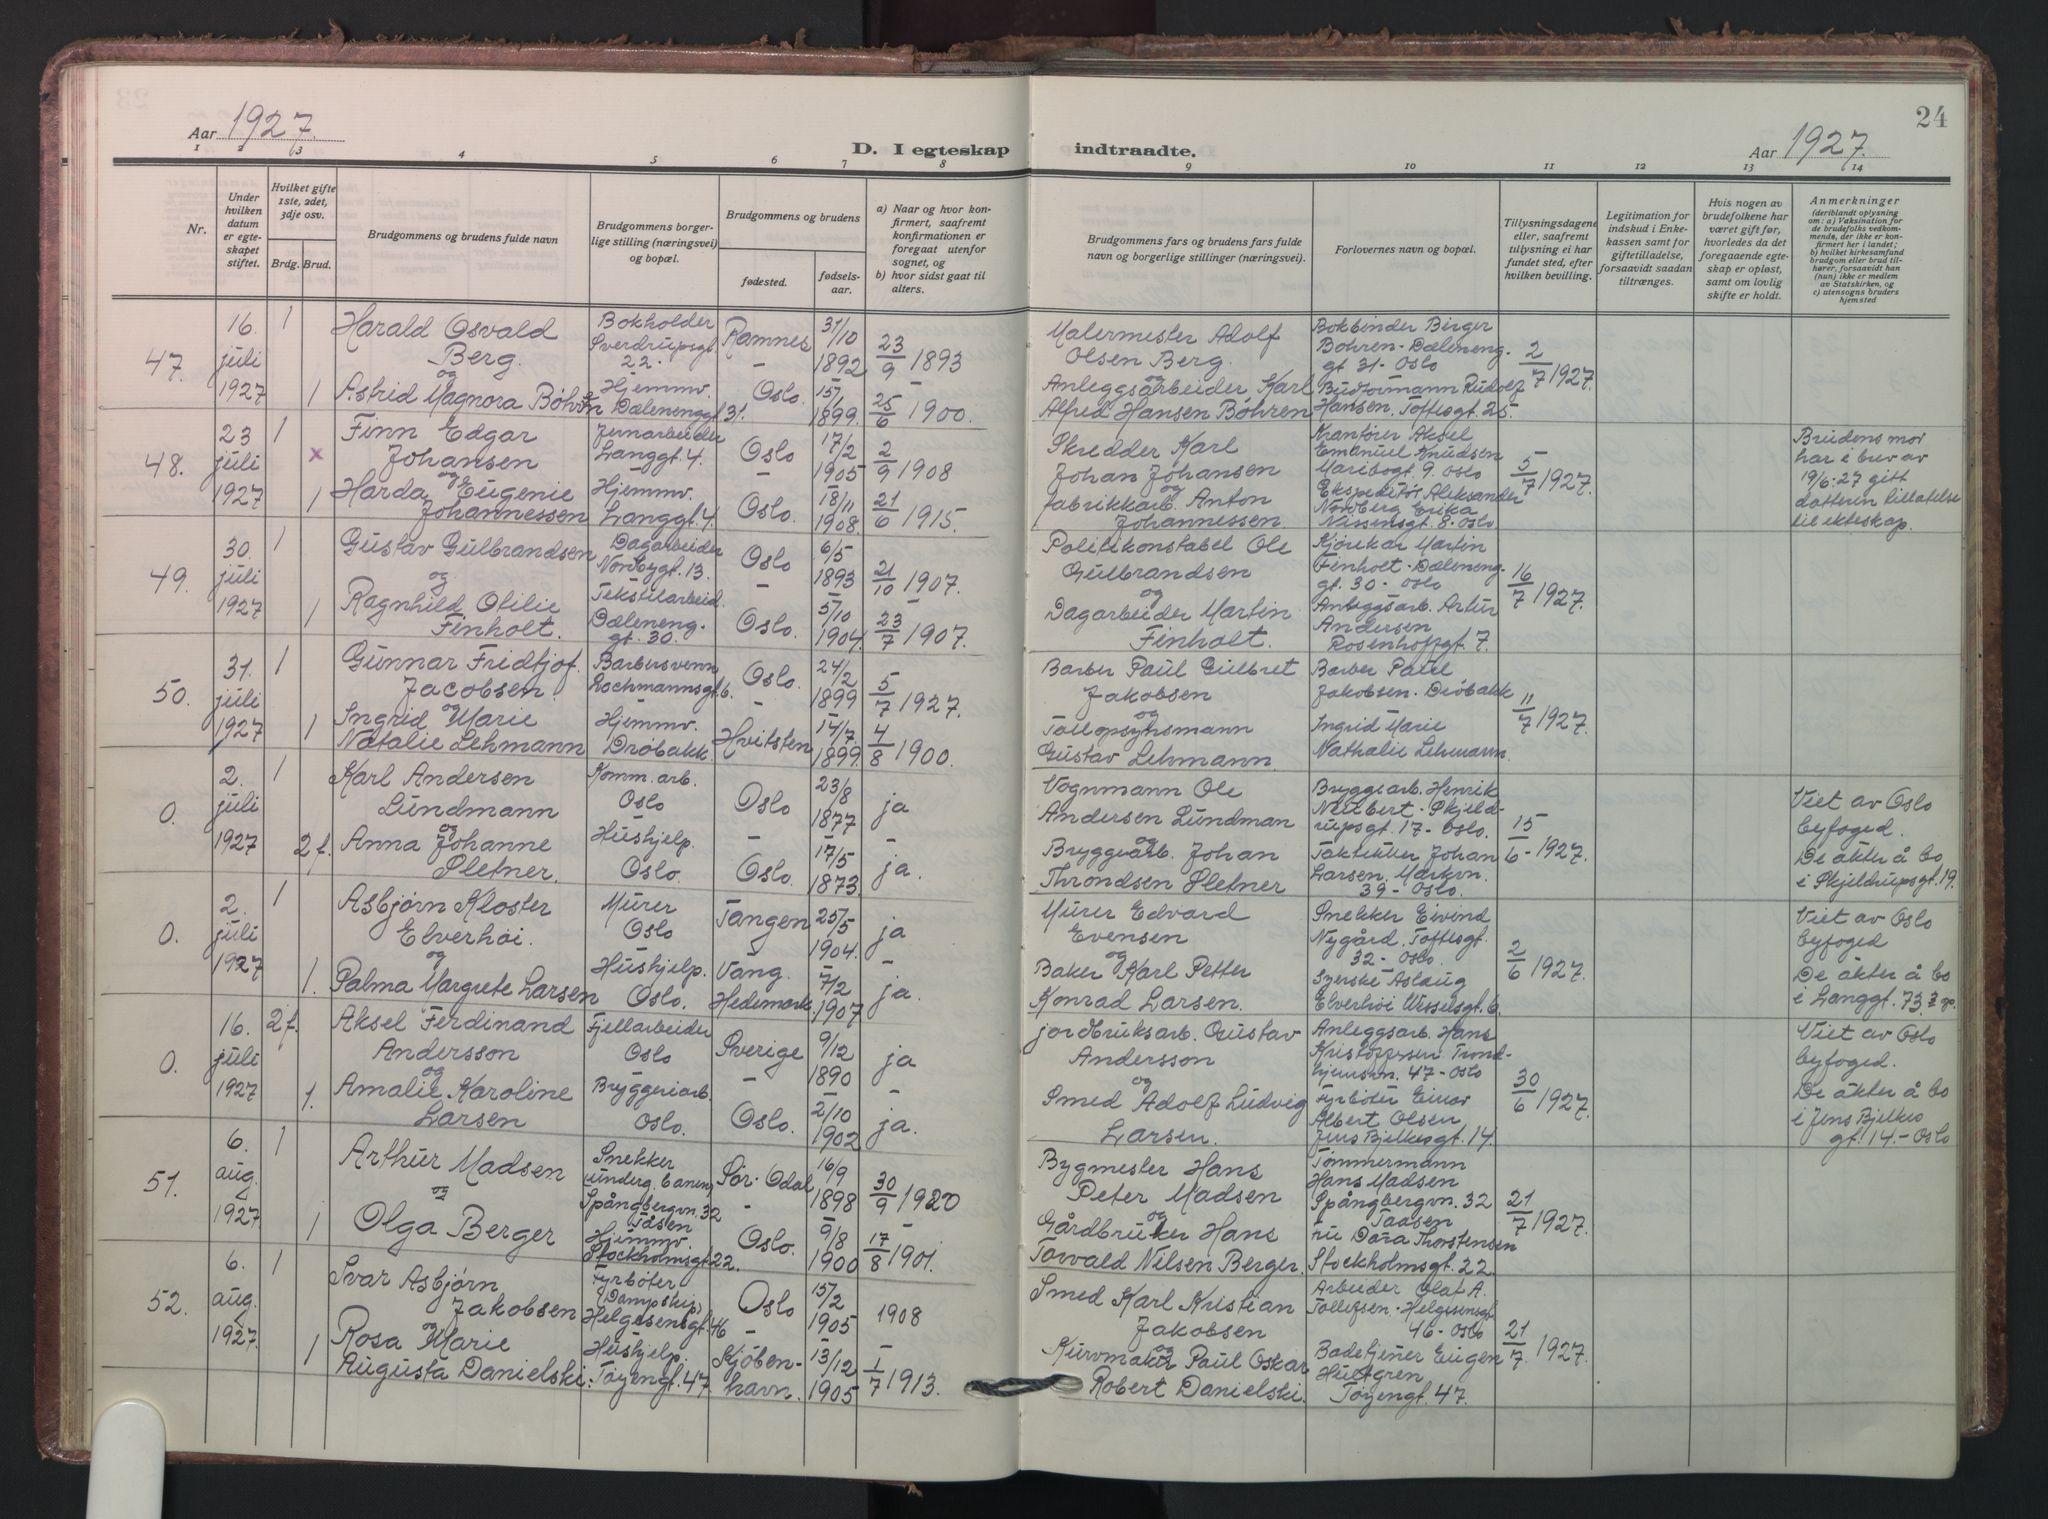 24
Aar 1927.
D. I egteskap indtraadte.
Aar 1927.
1 2 3 4 5 6 7 8 9 10 11 12 13 14
Nr.
Under hvilken datum er egteskapet stiftet.
Hvilket gifte 1ste, 2det, 3dje osv.
Brdg. Brud.
Brudgommens og brudens fulde navn
Brudgommens borgerlige stilling (næringsvei) og bopæl.
Brudgommens og brudens
fødested.
fødselsaar.
a) Naar og hvor konfirmert, saafremt konfirmationen er foregaat utenfor sognet, og
b) hvor sidst gaat til alters.
Brudgommens fars og brudens fars fulde navn og borgerlige stillinger (næringsvei).
Forlovernes navn og bopæl.
Tillysningsdagene eller, saafremt tillysning ei har fundet sted, efter hvilken bevilling.
Legitimation for indskud i Enkekassen samt for giftetilladelse, forsaavidt saadan tiltrænges.
Hvis nogen av brudefolkene har været gift før, hvorledes da det foregaaende egteskap er opløst, samt om lovlig skifte er holdt.
Anmerkninger
(deriblandt oplysning om: a) Vaksination for de brudefolks vedkommende, der ikke er konfirmert her i landet; b) hvilket kirkesamfund brudgom eller brud tilhører, forsaavidt han (hun) ikke er medlem av Statskirken, og c) utensogns bruders hjemsted
47. 16. juli 1927 1
Harald Osvald Berg.
Bokholder Sverdrupsgt. 22.
Ramnes 31/10 1892 23/9 1893
Malermester Adolf Olsen Berg.
Bokbinder Birger Bøhren - Dælenenggt 31 - Oslo
2/7 1927.
og
1 Astrid Magnora Bøhren
Hjemmv. Dælenenggt 31.
Oslo. 15/1 1899. 25/6 1900.
Anleggsarbeider Karl Alfred Hansen Bøhren
Rudolf Hansen. Toftesgt. 25.
48. 23 juli 1927 1
Finn Edgar Johansen
Jernarbeider Langgt. 4.
Oslo 17/2 1905 2/9 1908
Skredder Karl Johan Johansen
Kranfører Aksel Emanuel Knudsen Maribogt. 9 Oslo
5/7 1927.
Brudens mor har i brev av 19/6.27 gitt datteren tillatelse til ekteskap.
x og
1 Harda Eugenie Johannessen
Hjemmv. Langgt. 4.
Oslo. 18/11 1908. 21/6 1915.
og fabrikkarb. Anton Johannessen.
Ekspeditør Aleksander Nordberg Erika Nissensgt. 8 - Oslo
49. 30. juli 1927 1
Gustav Gulbrandsen
Dagarbeider Norbygt. 13.
Oslo 6/5 1893 21/10 1907.
Politikonstabel Ole Gulbrandsen
Kjørekar Martin Finholt - Dælenenggt. 30 - Oslo
16/7 1927.
og
1 Ragnhild Otilie Finholt.
Tekstilarbeid. Dælenenggt. 30.
Oslo. 5/10 1904. 23/7 1907.
og Dagarbeider Martin Finholt.
Anleggsarb. Artur Andersen Rosenhoffgt. 7.
50. 31. juli 1927 1
Gunnar Fridtjof Jacobsen.
Barbersvenn Rochmannsgt. 6.
Oslo. 24/2 1899 5/7 1927.
Barber Paul Gulbret Jakobsen
Barber Paul Jakobsen - Drøbakk
11/7 1927.
og
1 Ingrid Marie Natalie Lehmann
Hjemmv. Drøbakk.
Hvitsten 14/7 1899. 4/8 1900.
og Tollopsynsmann Gustav Lehmann.
Ingrid Marie Nathalie Lehmann.
0. 2. juli 1927 1
Karl Andersen Lundmann
Komm. arb. Oslo
Oslo 23/8 1877 ja
Vognmann Ole Andersen Lundman
Bryggearb. Henrik Neubert - Skjeldrupsgt. 17 - Oslo.
15/6 - 1927.
Viet av Oslo byfoged.
De akter å bo i Skjeldrupsgt. 19.
og
2 f. Anna Johanne Pletner.
Hushjelp. Oslo.
Oslo. 17/5 1873. ja.
og Bryggearb. Johan Throndsen Pletner
Taktekker Johan Larsen. Markvn. 39 - Oslo.
0. 2. juli 1927 1
Asbjørn Kloster Elverhøi.
Murer Oslo
Tangen 25/5 1904. ja
Murer Edvard Evensen
Snekker Eivind Nygård. Toftesgt. 32 - Oslo.
2/6 1927.
Viet av Oslo byfoged
De akter å bo i Langgt. 73
og
1. Palma Margrete Larsen
Hushjelp. Oslo.
Vang. Hedemark 7/2 1907 ja.
og Baker Karl Petter Konrad Larsen.
Syerske Aslaug Elverhøi Wesselsgt. 6.
0. 16. juli 1927 2 f.
Aksel Ferdinand Andersson
Fjellarbeider Oslo
Sverige 9/12 1890 ja
jordbruksarb. Gustav Andersson
Anleggsarb. Hans Kristoffersen Trondhjemsvn. 47 - Oslo
30/6 1927.
Viet av Oslo byfoged.
De akter å bo i Jens Bjelkes gt. 14. - Oslo
og
1. Amalie Karoline Larsen
Bryggeriarb. Oslo.
Oslo. 2/10 1902 ja.
og Smed Adolf Ludvig Larsen.
Fyrbøter Einar Albert Olsen Jens Bjelkesgt. 14.
51. 6. aug. 1927 1
Arthur Madsen
Snekker Spångbergvn. 32 Tåsen
Sør-Odal 16/9 1898 30/9 1920
Bygmester Hans Peter Madsen
Tømmermann Hans Madsen Spångbergvn. 32 Taasen
21/7 1927.
og
1 Olga Berger
Hjemmv Stockholmsgt. 22.
Oslo. 9/8 1900 17/8 1901.
og Gårdbruker Hans Torvald Nilsen Berger.
Fru Dora Thorstensen Stockholmsgt. 22.
52. 6. aug. 1927. 1
Svar Asbjørn Jakobsen
Fyrbøter (Dampskip) Helgesensgt. 46
Oslo 15/2 1905 1908
Smed Karl Kristian Jakobsen
Arbeider Olaf A. Tollefsen - Helgesensgt 46 - Oslo
21/7 1927.
og
1 Rosa Marie Augusta Danielski.
Hushjelp. Tøyengt. 47
Kjøbenhavn. 13/12 1905 1/7 1913.
og Kurvmaker Paul Oskar Robert Danielski.
Badetjener Eugen Hultgren Tøyengt. 47.